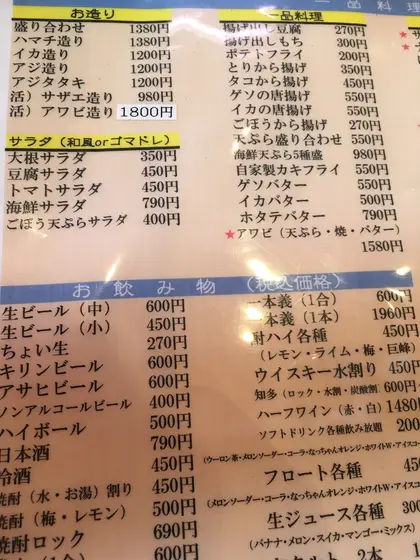 お造り
盛り合わせ 1380円
ハマチ造り 1380円
イカ造り 1200円
アジ造り 1200円
アジタタキ 1200円
活）サザエ造り 980円
活）アワビ造り 1800円
サラダ（和風orゴマドレ）
大根サラダ 350円
豆腐サラダ 450円
トマトサラダ 450円
海鮮サラダ 790円
ごぼう天ぷらサラダ 400円
一品料理
揚げ出し豆腐 270円
揚げ出しもち 300円
ポテトフライ 200円
とりから揚げ 350円
タコから揚げ 450円
ゲソの唐揚げ 550円
イカの唐揚げ 550円
ごぼうから揚げ 270円
天ぷら盛り合わせ 550円
海鮮天ぷら5種盛 980円
自家製カキフライ 550円
ゲソバター 550円
イカバター 500円
ホタテバター 790円
★アワビ（天ぷら・焼・バター）
1580円
一品料理
お飲み物（税込価格）
生ビール（中） 600円
生ビール（小） 450円
ちょい生 270円
キリンビール 600円
アサヒビール 600円
ノンアルコールビール 400円
ハイボール 500円
日本酒 790円
冷酒 450円
焼酎（水・お湯）割り 450円
焼酎（梅・レモン） 500円
焼酎ロック 690円
600円
一本義（1合） 600円
一本義（1本） 1960円
酎ハイ各種 450円
（レモン・ライム・梅・巨峰）
ウイスキー水割り 450円
知多（ロック・水割・炭酸割） 600円
ハーフワイン（赤・白） 1480
ソフトドリンク各種飲み放題 200
（ウーロン茶・メロンソーダー・コーラ・なっちゃんオレンジ・ホワイトW・アイスコー
フロート各種 450
（メロンソーダー・コーラ・なっちゃんオレンジ・ホワイトW・アイスコー
生ジュース各種
（バナナ・メロン・スイカ・マンゴー・ミックス）